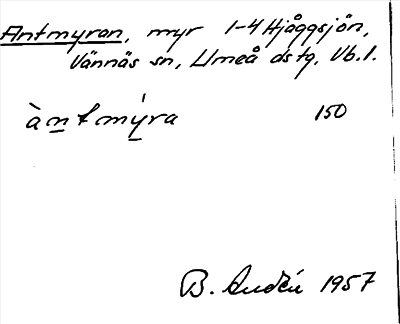 Antmyran, myr 1-4 Hjåggsjön,
Vännäs sn, Umeå dstg, Vb. l.
àntmýra 150
B. Audén 1957